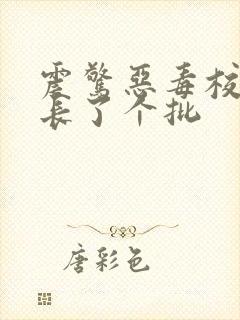 震惊恶毒校
长了个批
唐彩色